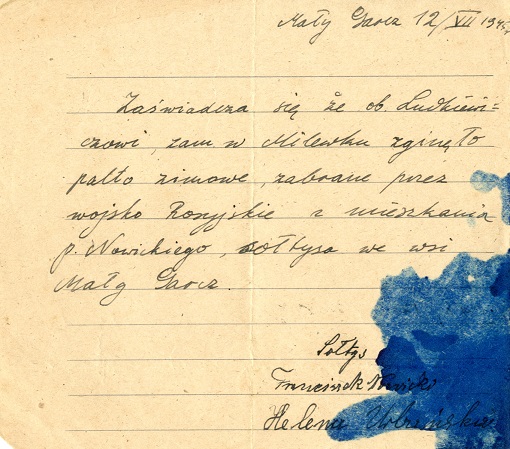 Mały Garcz 12/VII 1945r
Zaświadcza się że ob. Ludkiewi=
czowi, zam w Milewku zginęło
palto zimowe, zabrane przez
wojsko Rosyjskie z mieszkania
p. Nowickiego, sołtysa we wsi
Mały Garcz.
Sołtys
Franciszek Nowicki
Helena